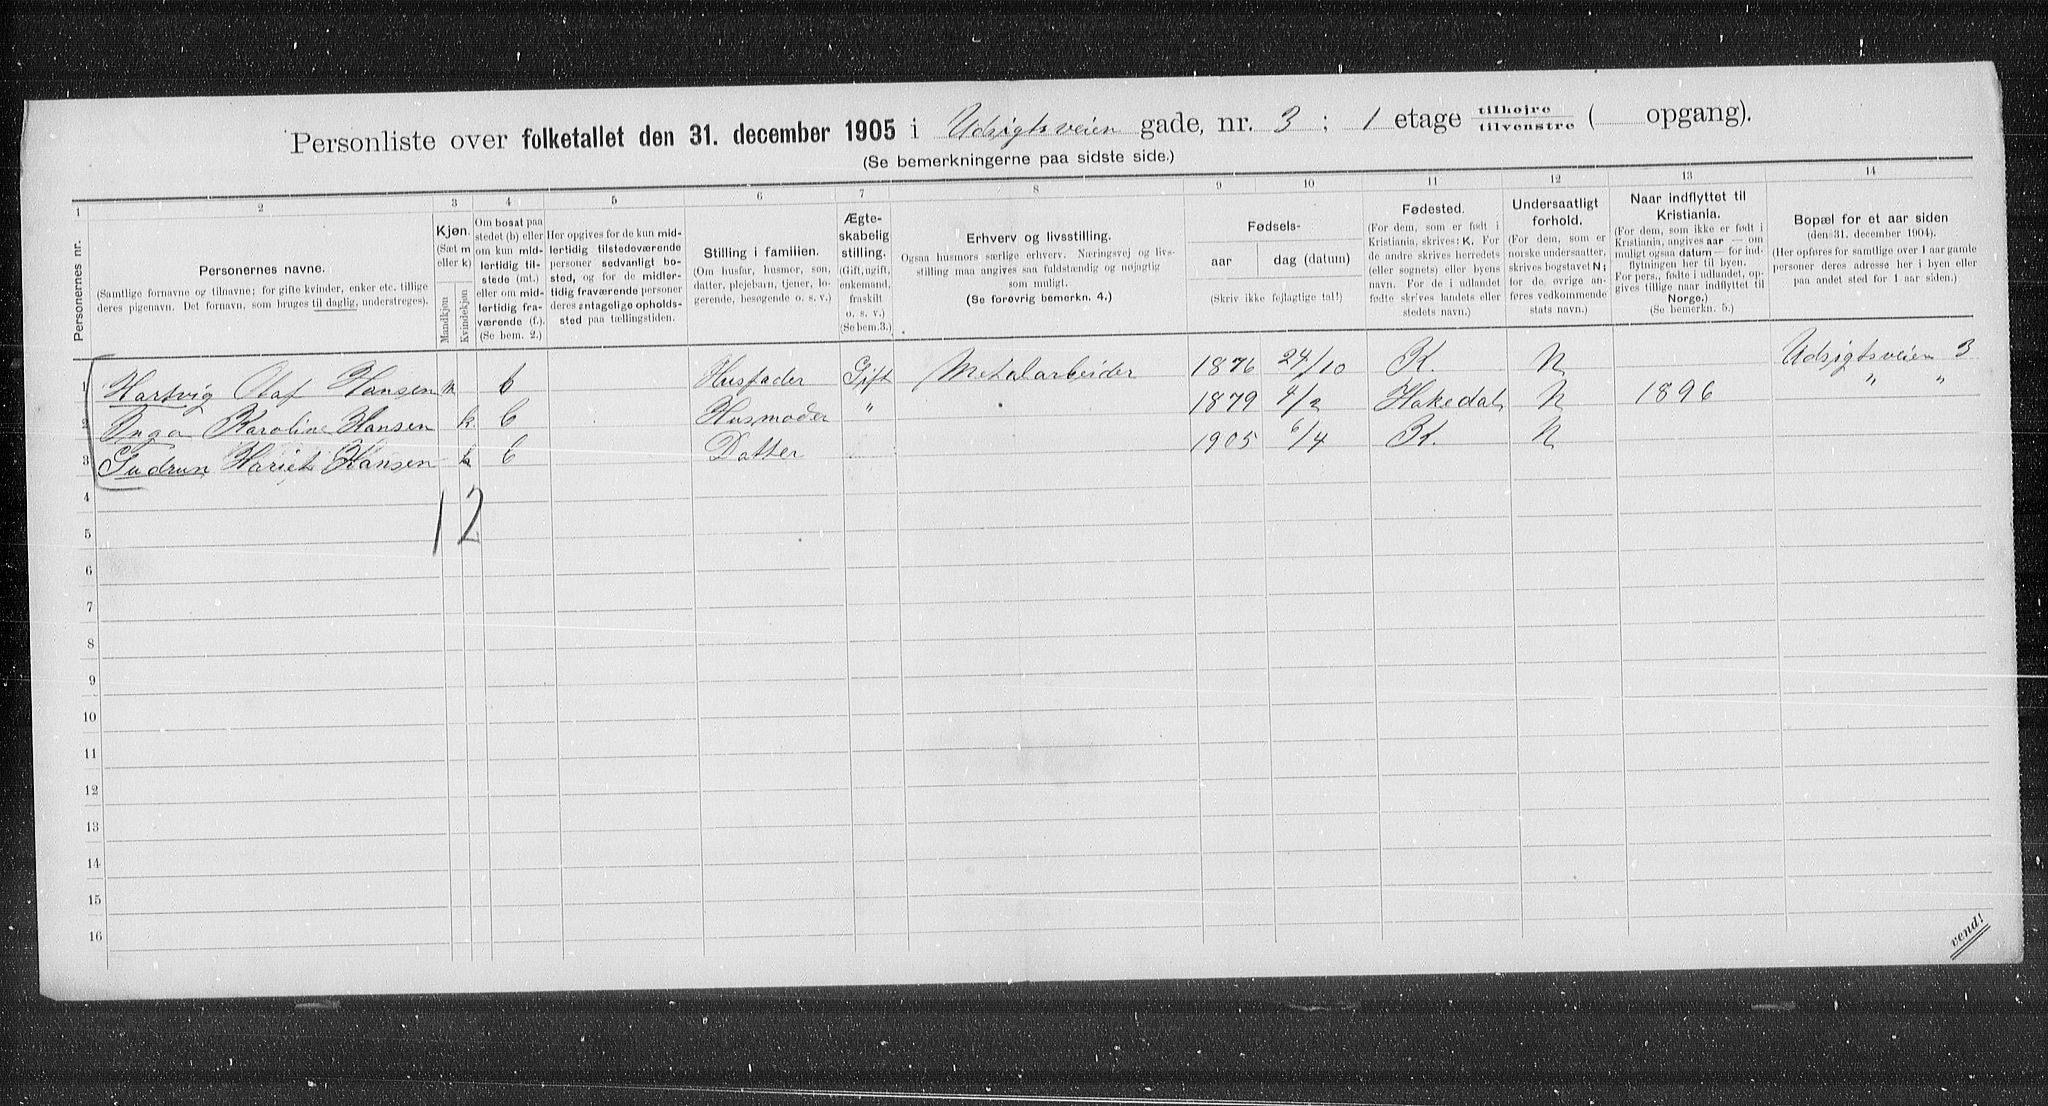 Personliste over folketallet den 31. december 1905 i Udsigtsveien gade, nr. 3 ; 1 etage tilhøjre / tilvenstre ( opgang).
(Se bemerkningerne paa sidste side.)
1 2 3 4 5 6 7 8 9 10 11 12 13 14
Personernes nr.
Personernes navne.
(Samtlige fornavne og tilnavne; for gifte kvinder, enker etc. tillige
deres pigenavn. Det fornavn, som bruges til daglig, understreges).
Kjøn.
(Sæt m
eller k)
Mandkjøn
Kvindekjøn
Om bosat paa
stedet (b) eller
om kun mid-
lertidig til-
stede (mt.)
eller om mid-
lertidig fra-
værende (f.).
(Se bem. 2.)
Her opgives for de kun mid-
lertidig tilstedeværende
personer sedvanligt bo-
sted, og for de midler-
tidig fraværende personer
deres antagelige opholds-
sted paa tællingstiden.
Stilling i familien.
(Om husfar, husmor, søn,
datter, plejebarn, tjener, lo-
gerende, besøgende o. s. v.)
Ægte-
skabelig
stilling.
(Gift, ugift,
enkemand,
fraskilt
o. s. v.)
(Se bem.3.)
Erhverv og livsstilling.
Ogsaa husmors særlige erhverv. Næringsvej og livs-
stilling maa angives saa fuldstændig og nøjagtig
som muligt.
(Se forøvrig bemerkn. 4.)
Fødsels-
aar
dag (datum)
(Skriv ikke fejlagtige tal!)
Fødested.
(For dem, som er født i
Kristiania, skrives: K. For
de andre skrives herredets
(eller sognets) eller byens
navn. For de i udlandet
fødte skrives landets eller
stedets navn.)
Undersaatligt
forhold.
(For dem, som er
norske undersaatter,
skrives bogstavet N;
for de øvrige an-
føres vedkommende
stats navn.)
Naar indflyttet til
Kristiania.
(For dem, som ikke er født i
Kristiania, angives aar — om
muligt ogsaa datum — for ind-
flytningen her til byen.
For pers., fødte i udlandet, op-
gives tillige naar indflyttet til
Norge.)
(Se bemerkn. 5.)
Bopæl for et aar siden
(den 31. december 1904).
(Her opføres for samtlige over 1 aar gamle
personer deres adresse her i byen eller
paa andet sted for 1 aar siden.)
1 Hartvig Olaf Hansen m b Husfader Gift Metalarbeider 1876 24/10 K. N Udsigtsveien 3
2 Inga Karoline Hansen k. b Husmoder " 1879 4/2 Hakedal N 1896 " "
3 Gudrun Hariet Hansen k b Datter 1905 6/4 K. N
1 2
4
5
6
7
8
9
10
11
12
13
14
15
16
vend!